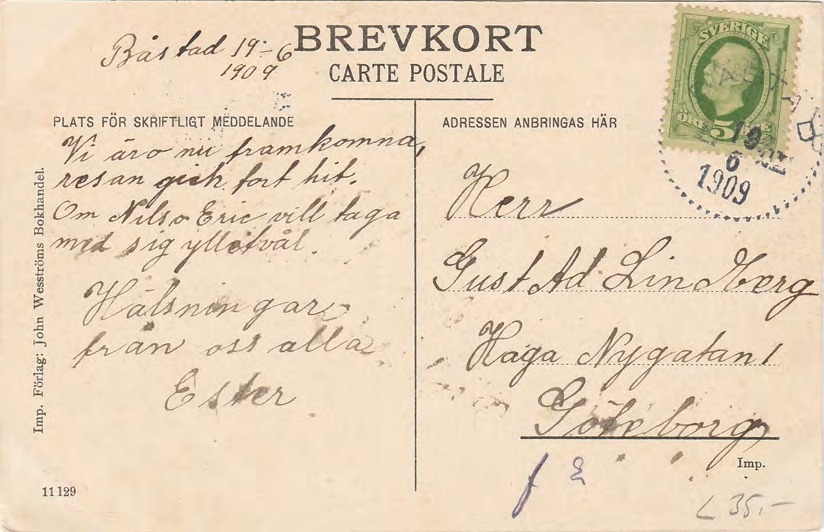 Båstad 19-6
1909
BREVKORT
CARTE POSTALE
SVERIGE
ÖRE 5
BÅSTAD
19
6
1909
PLATS FÖR SKRIFTLIGT MEDDELANDE
Vi äro nu framkomna,
resan gick fort hit.
Om Nils o Eric vill taga
med sig ylletvål.
Hälsningar
från oss alla
Ester
ADRESSEN ANBRINGAS HÄR
Herr
Gust Ad. Lindberg
Haga Nygatan 1
Göteborg
Imp.
Imp. Förlag: John Wesströms Bokhandel.
11129
35,-